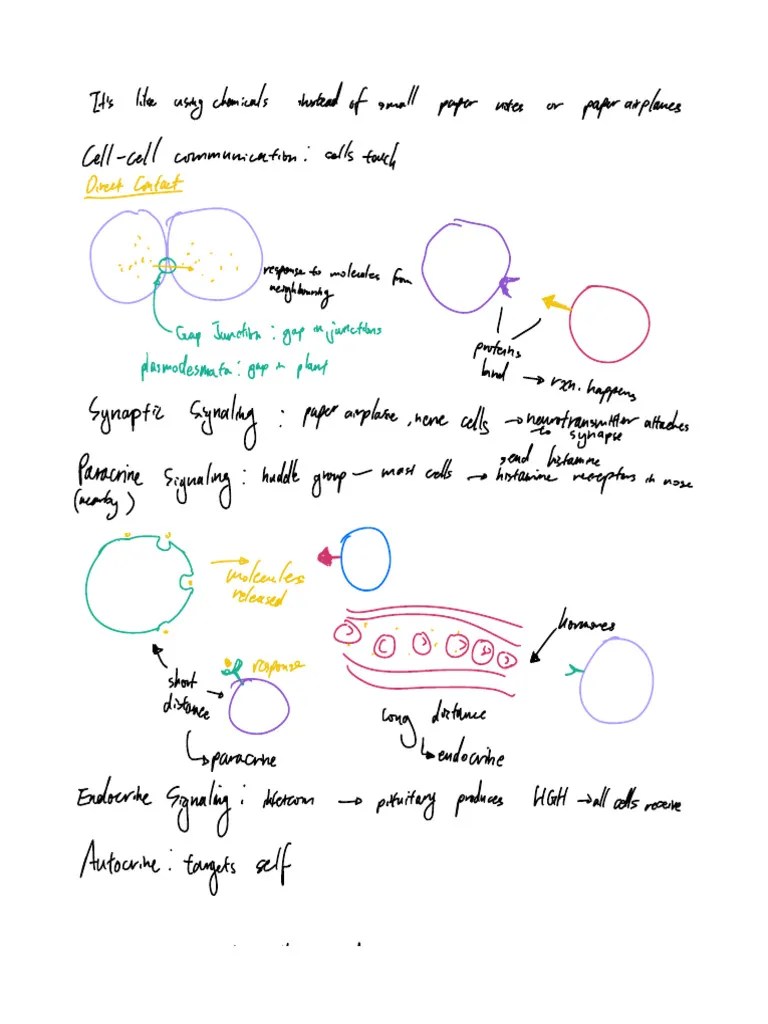 It's like using chemicals instead of small paper notes or paper airplanes
Cell-cell communication: cells touch
Direct Contact
response to molecules from
neighbouring
Gap Junction: gap in junctions
plasmodesmata: gap in plant
proteins
bind → rxn. happens
Synaptic Signaling: paper airplane, nerve cells → neurotransmitter attaches
to synapse
send histamine
Paracrine Signaling: huddle group — mast cells → histamine receptors in nose
(nearby)
molecules
released
hormones
response
short
distance
→ paracrine
long distance
→ endocrine
Endocrine Signaling: intercom → pituitary produces HGH → all cells receive
Autocrine: targets self